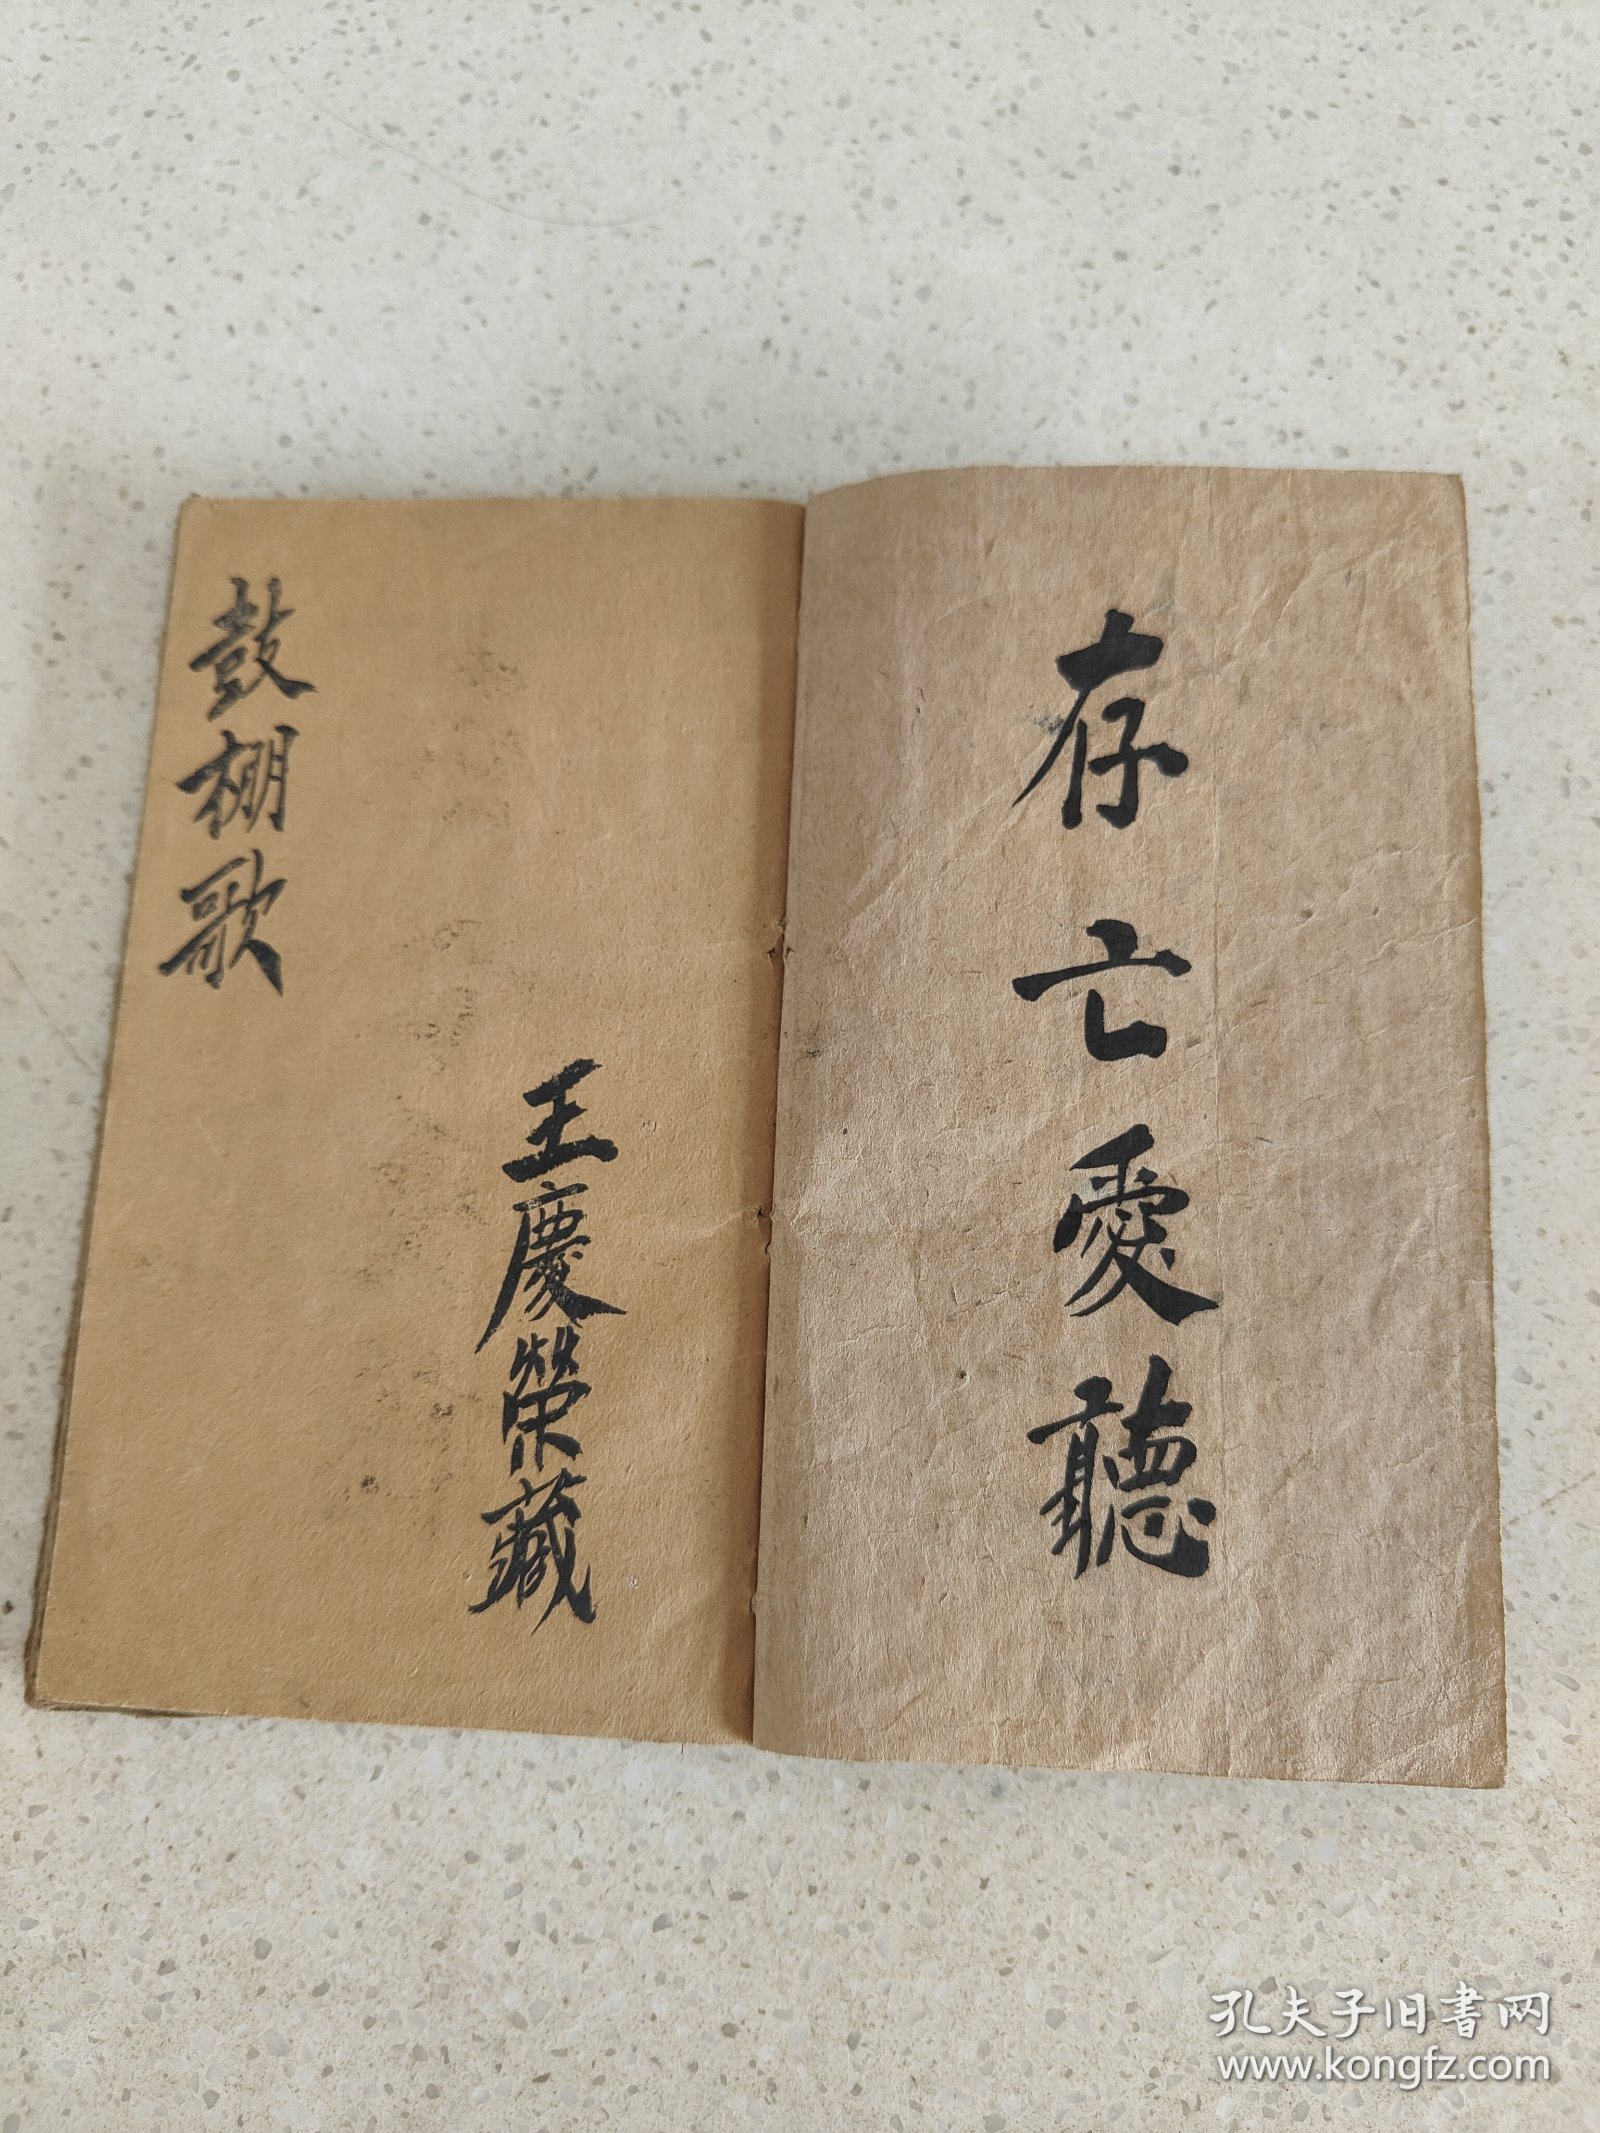 存亡愛聽
王慶榮藏
鼓棚歌
孔夫子旧书网
www.kongfz.com